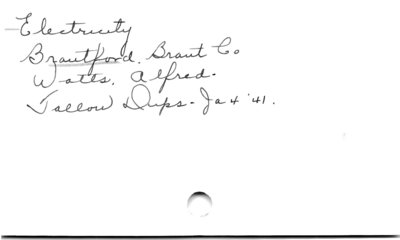 Electricity
Brantford. Brant Co
Watts, Alfred.
Tallow Dips - Ja 4 '41.